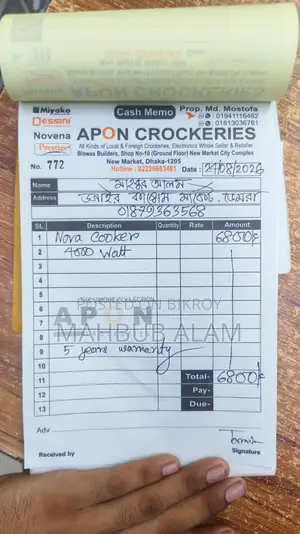 Miyako
DESSINI
Novena
Prestige
Cash Memo
Prop. Md. Mostofa
01941116462
01813036761
APON CROCKERIES
All Kinds of Local & Foreign Crockeries, Electronics Whole Seller & Retailer
Biswas Builders, Shop No-10 (Ground Floor) New Market City Complex
New Market, Dhaka-1205
Hotline : 02220683481
No. 772
Date : 21/08/2026
Name মাহবুব আলম
Address
01879363568
SL. Description Quantity Rate Amount
1 Nova Cooker 6800/-
2 4000 Watt
3
4
5
6
7
8
9 5 years warranty
10
11 Total- 6800/-
12 Pay-
13 Due-
THE HOME COLLECTION
APON
POSTED ON BIKROY
MAHBUB ALAM
Adv
Received by
Signature